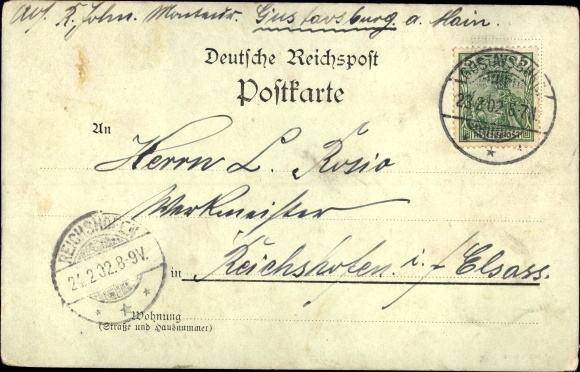 K. John. Monteur. Gustavsburg a. Main.
Deutsche Reichspost
Postkarte
GUSTAVSBURG
23.2.02.6-7
REICHSPOST
An
Herrn L. Rosio
Werkmeister
in Reichshofen i. Elsass.
REICHSHOFEN
24.2.02.8-9V.
Wohnung
(Straße und Hausnummer)